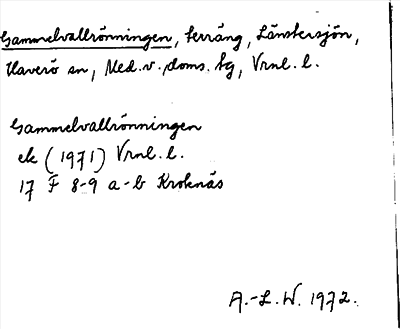 Gammelvallrönningen, terräng, Länstersjön,
Haverö sn, Med.v. doms. tg, Vrnl. l.
Gammelvallrönningen
ek (1971) Vrnl. l.
17 F 8-9 a-b Kroknäs
A.-L. W. 1972.